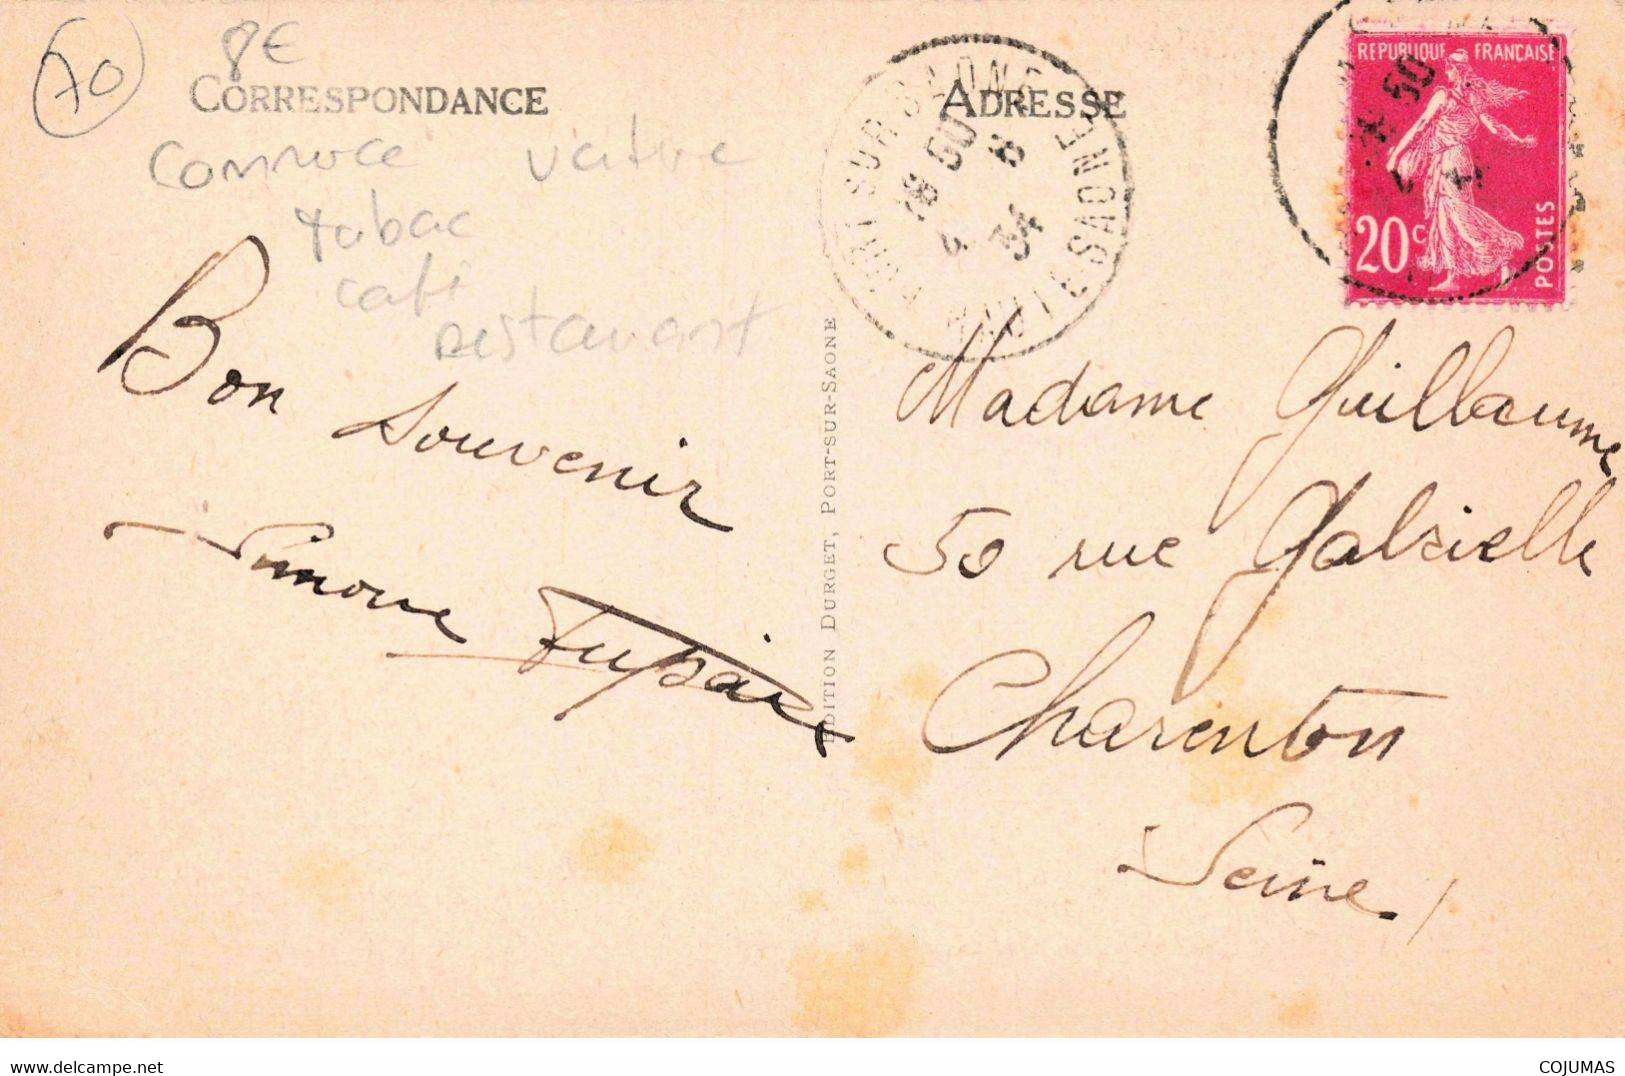 70
8€
CORRESPONDANCE
commerce voiture
tabac
café
restaurant
Bon
souvenir
Simone
EDITION DURGET, PORT-SUR-SAONE
ADRESSE
SUR SAONE
HTE SAONE
18 50
5 8
34
REPUBLIQUE FRANÇAISE
20c
POSTES
50
Madame Guillaume
50 rue Gabrielle
Charenton
Seine
COJUMAS